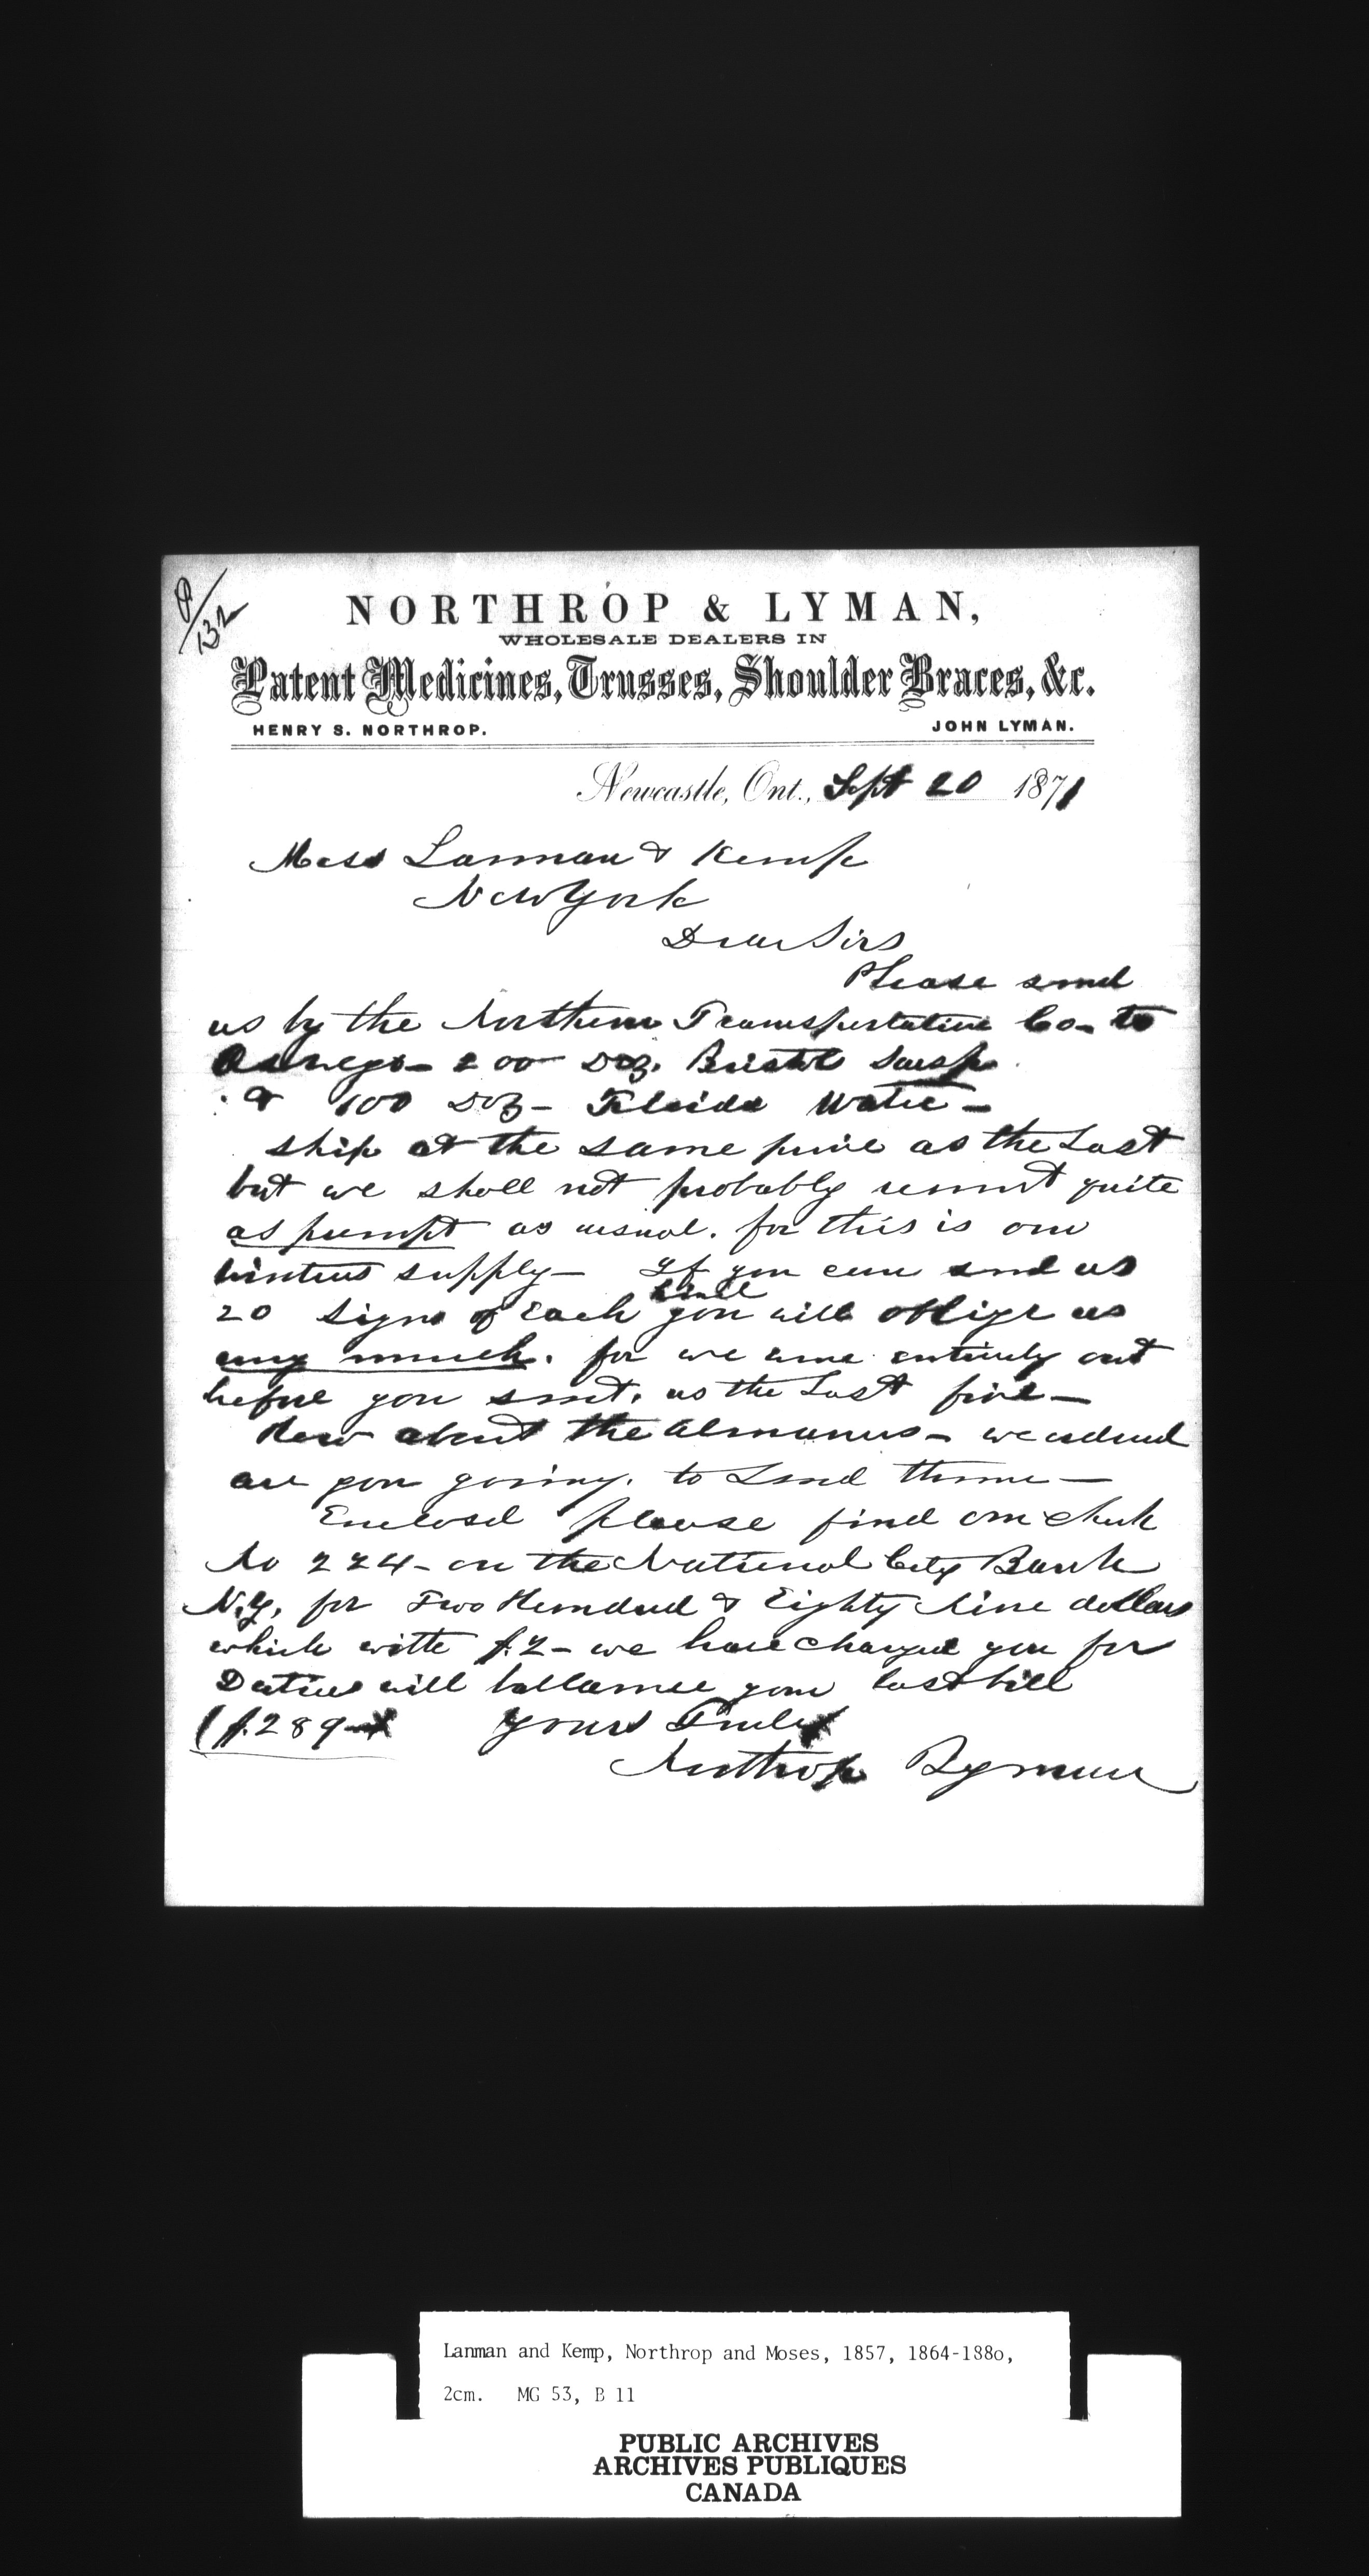 P/132
NORTHROP & LYMAN,
WHOLESALE DEALERS IN
Patent Medicines, Trusses, Shoulder Braces, &c.
HENRY S. NORTHROP. JOHN LYMAN.
Newcastle, Ont., Sept 20 1871
Mess Lanman & Kemp
New York
Dear Sirs
Please send
us by the Northern Transportation Co- to
Oswego- 200 Doz. Bristol Sarsp
& 100 Doz- Florida Water-
ship at the same price as the Last
but we shall not probably remit quite
as prompt as usual. for this is our
winters supply- If you can send us
20 Signs of Each kind you will oblige us
very much. for we were entirely out
before you sent. us the Last five-
How about the Almanacs- we ordered
are you going. to Send them-
Enclosed please find our check
No 224- on the National City Bank
N.Y. for Two Hundred & Eighty Nine dollars
which with $.2- we have charged you for
Duties will ballance your last bill
($.289-
Yours Truly
Northrop Lyman
Lanman and Kemp, Northrop and Moses, 1857, 1864-1880,
2cm. MG 53, B 11
PUBLIC ARCHIVES
ARCHIVES PUBLIQUES
CANADA